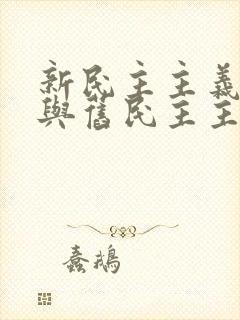 新民主主義
與舊民主主
蠢鵝